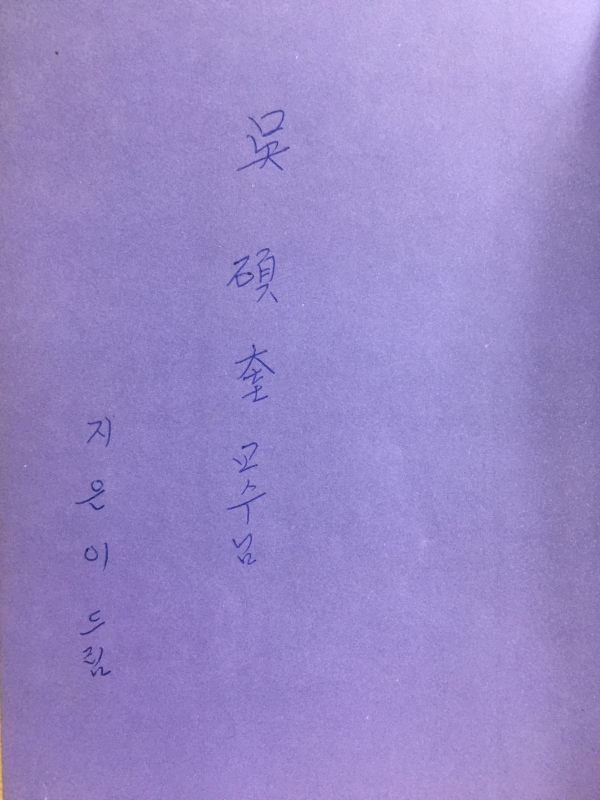 吳碩奎 교수님
지은이 드림